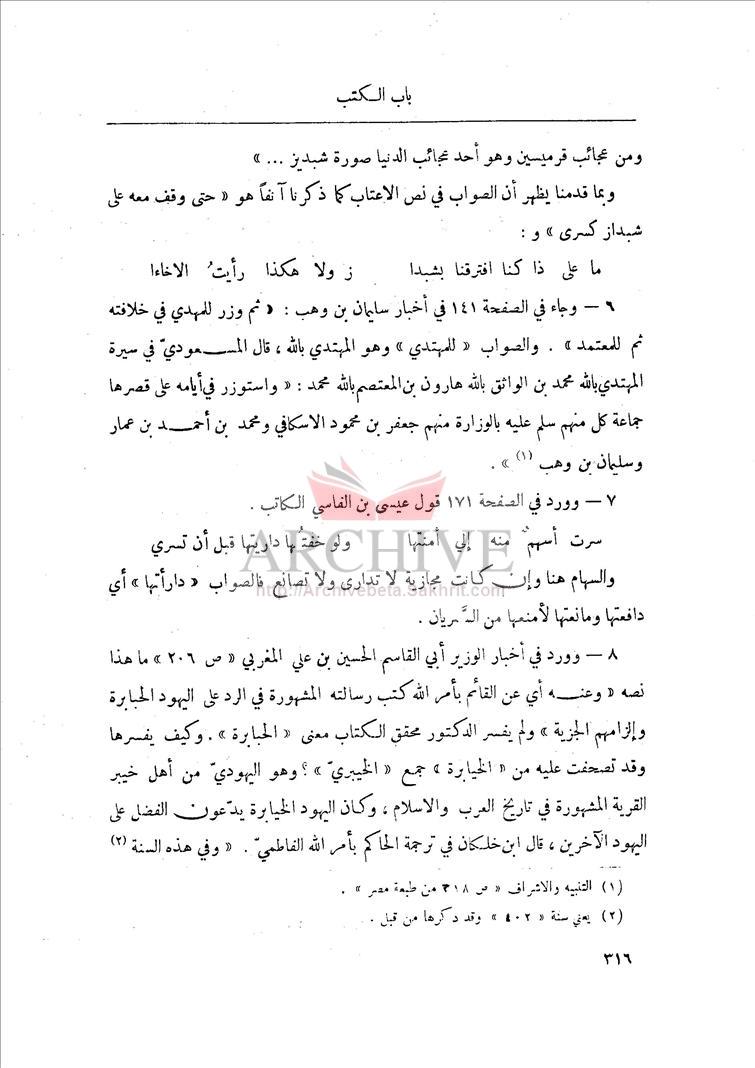 باب الكتب
ومن عجائب قرميسين وهو أحد عجائب الدنيا صورة شبديز ... »
وبما قدمنا يظهر أن الصواب في نص الاعتاب كما ذكرنا آنفاً هو « حتى وقف معه على
شبداز كسرى » و :
ما على ذا كنا افترقنا بشبدا ز ولا هكذا رأيتُ الاخاءا
٦ — وجاء في الصفحة ١٤١ في أخبار سليمان بن وهب : « ثم وزر للمهدي في خلافته
ثم للمعتمد » . والصواب « للمهتدي » وهو المهتدي بالله ، قال المسعوديّ في سيرة
المهتدي بالله محمد بن الواثق بالله هارون بن المعتصم بالله محمد : « واستوزر في أيامه على قصرها
جماعة كل منهم سلم عليه بالوزارة منهم جعفر بن محمود الاسكافي ومحمد بن أحمد بن عمار
وسليمان بن وهب (١) » .
٧ — وورد في الصفحة ١٧١ قول عيسى بن الفاسي الكاتب .
ARCHIVE
سرت أسهمٌ منه إلي أمنتها ولو خفتُها داريتها قبل أن تسري
والسهام هنا وإن كانت مجازية لا تدارى ولا تصانع فالصواب « دارأتها » أي
http://Archivebeta.Sakhrit.com
دافعتها ومانعتها لأمنعها من السَّريان .
٨ — وورد في أخبار الوزير أبي القاسم الحسين بن علي المغربي « ص ٢٠٦ » ما هذا
نصه « وعنه أي عن القائم بأمر الله كتب رسالته المشهورة في الرد على اليهود الحبابرة
وإلزامهم الجزية » ولم يفسر الدكتور محقق الكتاب معنى « الحبابرة » . وكيف يفسرها
وقد تصحفت عليه من « الخيابرة » جمع « الخيبريّ » ؟ وهو اليهوديّ من أهل خيبر
القرية المشهورة في تاريخ العرب والاسلام ، وكان اليهود الخيابرة يدّعون الفضل على
اليهود الآخرين ، قال ابن خلكان في ترجمة الحاكم بأمر الله الفاطميّ . « وفي هذه السنة (٢)
(١) التنبيه والاشراف « ص ٣١٨ من طبعة مصر » .
(٢) يعني سنة « ٤٠٢ » وقد ذكرها من قبل .
٣١٦